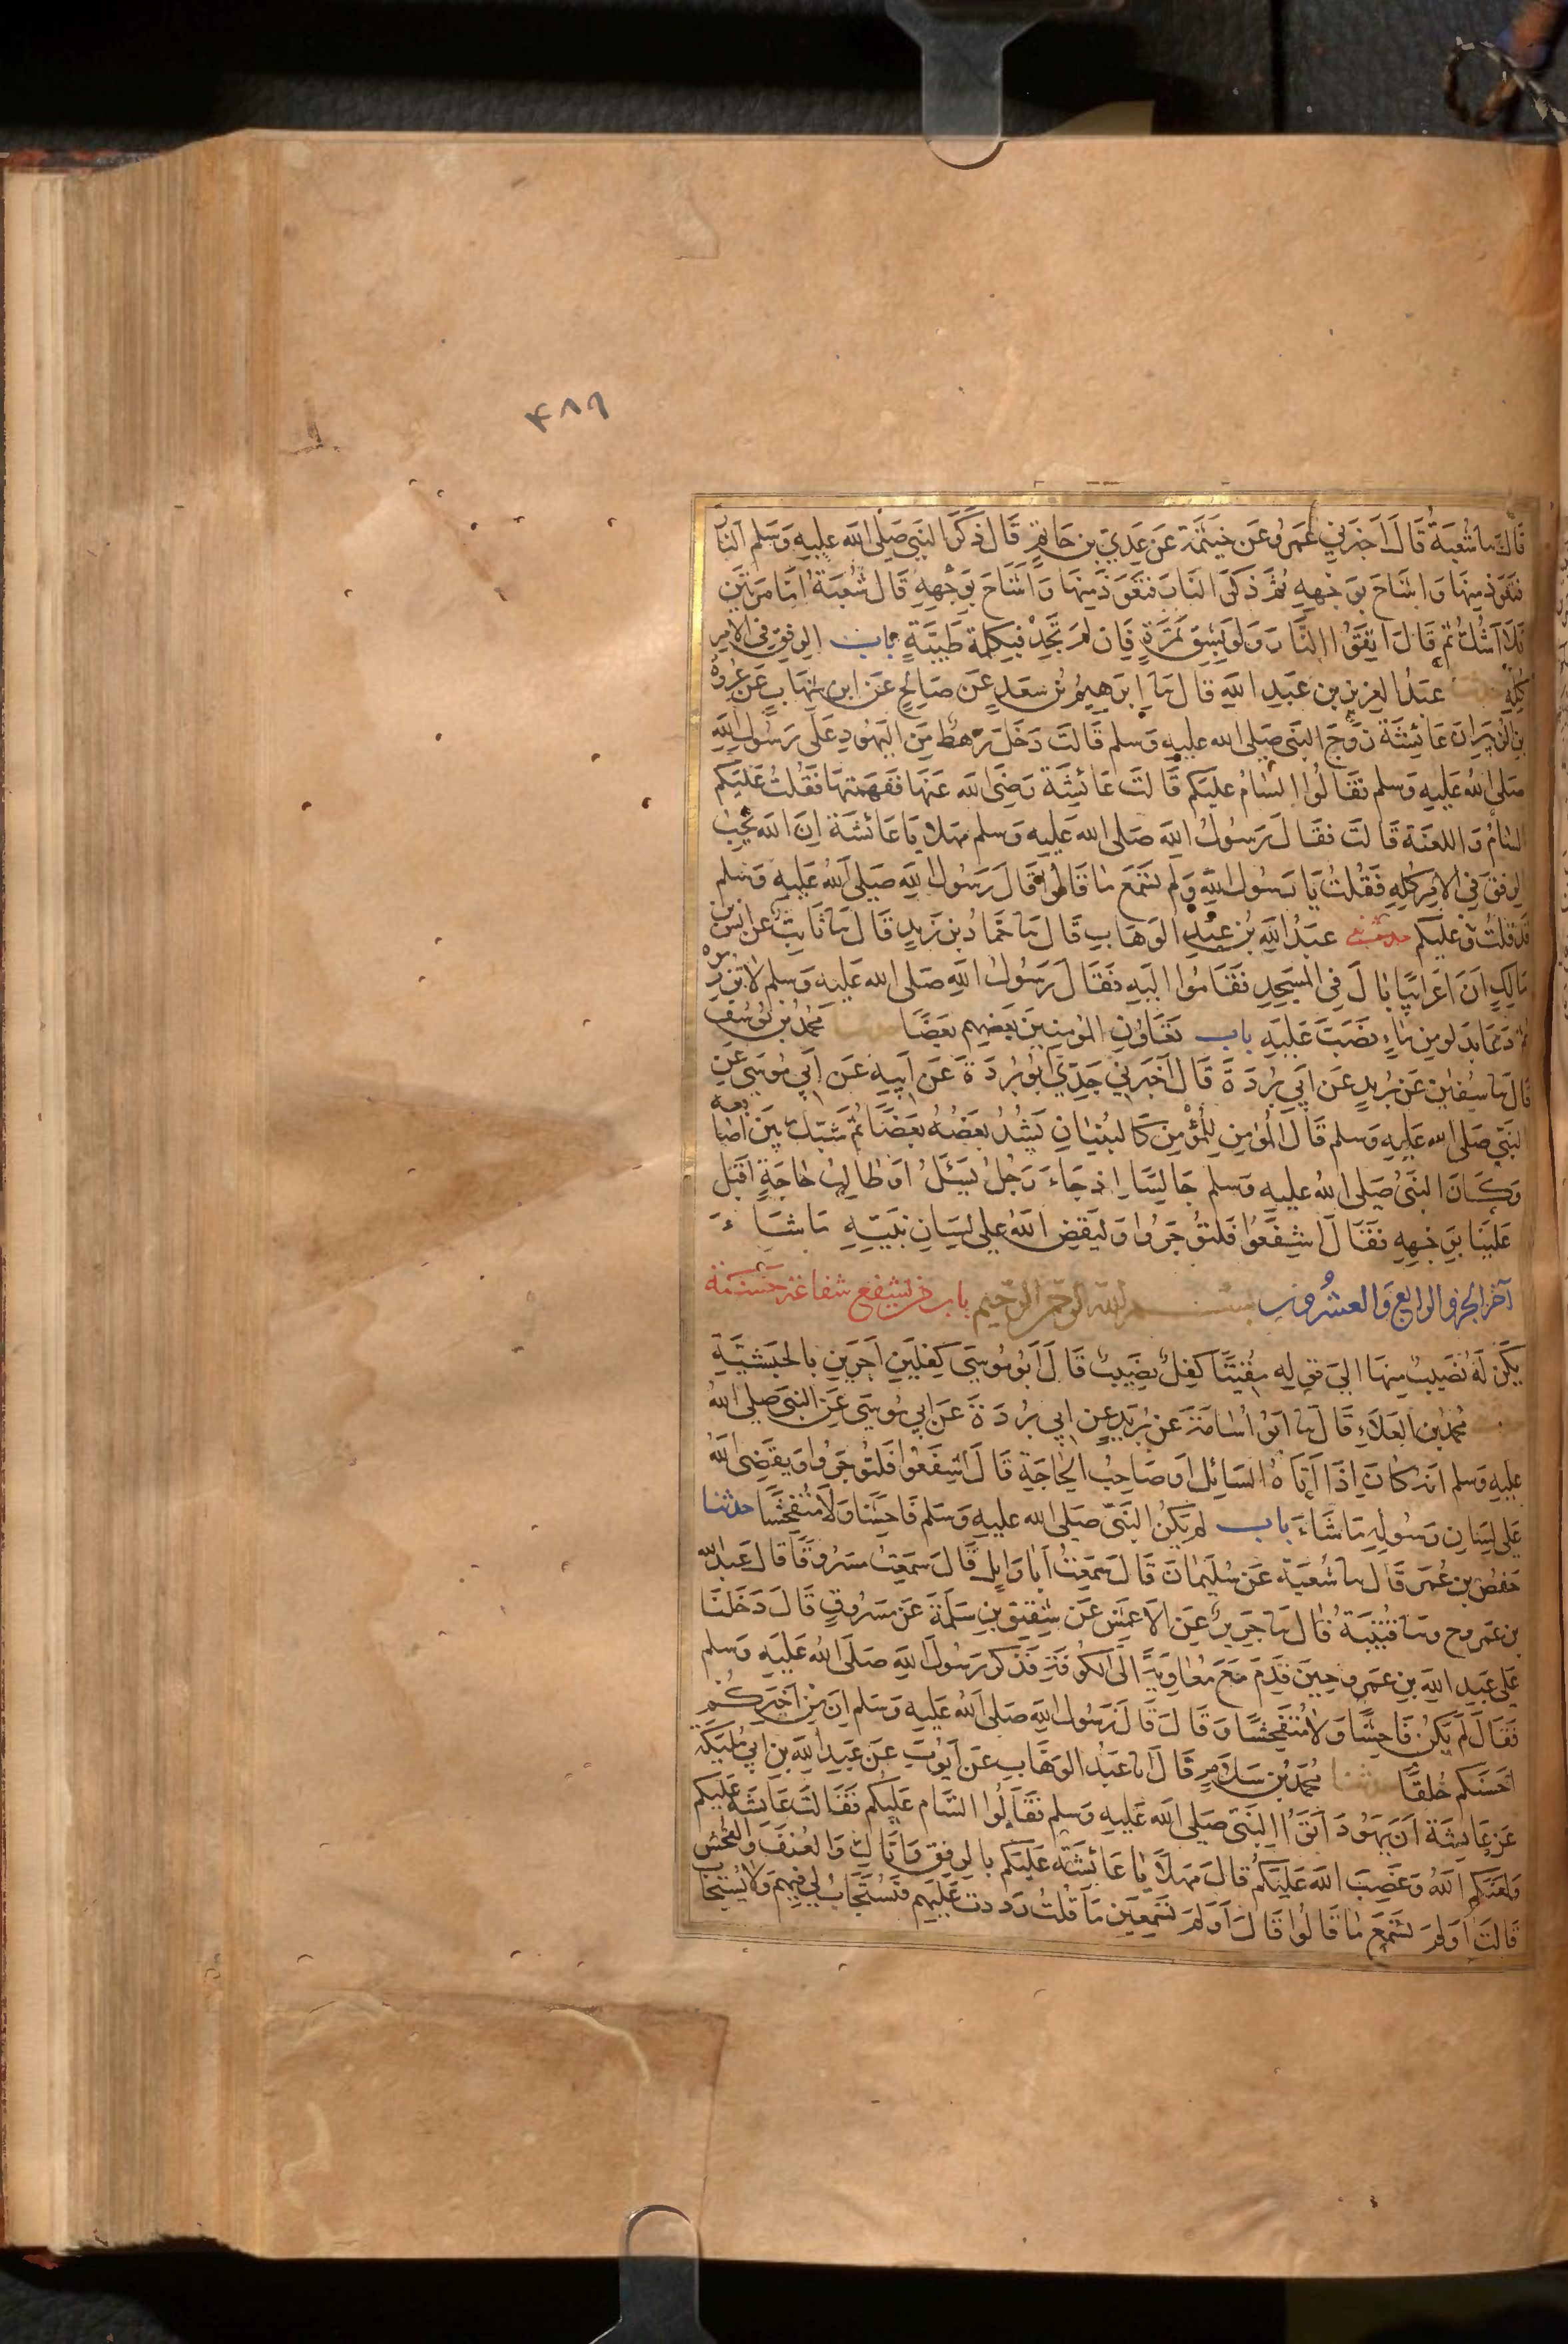 ۴۸۹
قال نا شُعْبَةُ قَالَ أَخْبَرَنِي عَمْرٌو عَنْ خَيْثَمَةَ عَنْ عَدِيِّ بْنِ حَاتِمٍ قَالَ ذَكَرَ النَّبِيُّ صَلَّى اللهُ عليهِ وَسَلم النَّارَ
فَتَعَوَّذَ مِنْهَا وَاَشَاحَ بِوَجْهِهِ ثُمَّ ذَكَرَ النَّارَ فَتَعَوَّذَ مِنْهَا وَاَشَاحَ بِوَجْهِهِ قَالَ شُعْبَةُ اَمَّا مَرَّتَيْنِ
فَلَا اَشُكُّ ثُمَّ قَالَ اتَّقُوا النَّارَ وَلَوْ بِشِقِّ تَمْرَةٍ فَإِن لَمْ تَجِدْ فَبِكَلِمَةٍ طَيِّبَةٍ باب الرِفقِ فِي الأمْرِ
كُلِّهِ حدثنا عَبْدُ العَزِيزِ بن عَبْدِ اللهِ قَالَ نا إِبرَهِيمُ بْنُ سَعْدٍ عَنْ صَالِحٍ عَن ابن شِهَابٍ عَن عُرْوَةَ
بنِ الزُبَيْرِ اَنَّ عَائِشَةَ زَوْجَ النَّبِي صَلى الله عليهِ وَسَلم قَالَتْ دَخَلَ رَهْطٌ مِنَ اليَهُودِ عَلَى رَسُولِ اللهِ
صَلى اللهُ عَلَيْهِ وَسَلم فَقَالُوا السَّامُ عَلَيْكُم قَالَتْ عَائِشَة رَضِيَ الله عَنْهَا فَفَهِمْتُهَا فَقُلْتُ عَلَيْكُم
السَّامُ وَاللعْنَة قَالَتْ فَقَالَ رَسُولُ الله صَلى الله عَلَيْهِ وَسلم مَهْلا يَا عَائشَة اِنَّ الله يُحِبُّ
الرِفْقَ فِي الأَمْرِ كُلِّهِ فَقُلْتُ يَا رَسُول اللهِ وَلَمْ تَسْمَعْ مَا قَالُوا قَالَ رَسُولُ اللهِ صَلى اللهُ عَلَيْهِ وَسَلم
قَدْ قُلْتُ وَعَلَيْكُم حدثنا عَبْدُ اللهِ بْنُ عَبْدِ الوَهَابِ قَالَ نا حَمَّادُ بن زَيْدٍ قَالَ نا ثَابِتٌ عَنْ اَنَسِ بن
مَالِكٍ اَنَّ اَعْرَابِيًا بَالَ فِي المَسْجِدِ فَقَامُوا اِلَيْهِ فَقَالَ رَسُولُ اللهِ صَلى الله عَليْهِ وَسلم لا تُزْرِمُوهُ
ثُمَّ دَعَا بدَلوٍ مِن مَاءٍ فَصَبَّ عَلَيْهِ باب تَعَاوُنِ المُؤمِنِينَ بَعْضِهِم بَعْضًا حدثنا مُحَمَّدُ بْن يُوسُفَ
قَالَ نا سُفيٰن عَنْ بُرَيْدٍ عَن اَبِي بُرْدَةَ قَالَ اَخْبَرَنِي جَدِّي اَبُو بُرْدَةَ عَنْ اَبِيهِ عَنْ اَبِي مُوسَى عَنِ
النَبِّي صَلى الله عَليهِ وَسلم قَالَ المُؤمِن لِلمُؤْمِنِ كَالبُنيَانِ يَشُدُّ بَعْضُهُ بَعْضًا ثُمَّ شَبَّكَ بَيْنَ اَصَابِعه
وَكَانَ النَّبِيُ صَلى اللهُ عليهِ وَسلم جَالِسًا اِذ جَاءَ رَجُلٌ يَسْئَلُ اَوْ طَالِبُ حَاجَةٍ اَقْبَلَ
عَلَيْنَا بِوَجْهِهِ فَقَالَ اشْفَعُوا فَلتُؤْجَرُوا وَليَقْضِ اللهُ عَلى لِسَانِ نَبِيِّهِ مَا شَاءَ
آخر الجزو الرابع والعشرون بسم الله الرحمن الرحيم باب من يشفع شفاعة حسنة
يَكُنْ لَهُ نَصِيبٌ مِنْهَا اِلَى قَوْلِهِ مُقِيتًا كِفلٌ نَصِيبٌ قَالَ اَبُو مُوسَى كِفْلَيْنِ اَجْرَيْنِ بِالحَبَشِيَّةِ
حدثنا مُحَمَّدُ بن العَلَاءِ قَالَ نا اَبُو اُسَامَةَ عَنْ بُرَيْدٍ عَن اَبِي بُرْدَةَ عَن اَبِي مُوسَى عَنِ النَّبِيِّ صَلى اللهُ
عليهِ وسلم اَنهُ كَانَ اِذَا اَتَاهُ السَائِلُ اَو صَاحِبُ الحَاجَةِ قَالَ اشْفَعُوا فَلتُؤجَرُوا وَيَقْضِي اللهُ
عَلى لِسَانِ رَسُولِهِ مَا شَاءَ باب لَم يَكُنِ النَّبِيُّ صَلى الله عليهِ وَسَلم فَاحِشًا وَلَا مُتَفَحِّشًا حدثنا
حَفْصُ بن عُمَرَ قَالَ نا شُعْبَة عَنْ سُلَيْمَانَ قَالَ سَمِعْتُ اَبَا وَايِلٍ قَالَ سَمِعْت مَسْرُوقًا قَالَ قَالَ عَبدُ الله
بن عَمْرو ح ونا قُتَيْبَةُ قَالَ نا جَرِيرٌ عَنِ الاَعْمَشِ عَنْ شَقِيقِ بْنِ سَلَمَةَ عَنْ مَسْرُوقٍ قَالَ دَخَلنَا
عَلى عَبدِ اللهِ بنِ عَمرو حِينَ قَدِمَ مَعَ مُعَاوِيَة اِلَى الكُوفَةِ فَذَكَرَ رَسُولَ اللهِ صَلَّى اللهُ عَليْهِ وَسلم
فَقَالَ لَم يَكُنْ فَاحِشًا وَلا مُتَفَحِّشًا وَقَالَ قَالَ رَسُول اللهِ صَلى اللهُ عَليهِ وَسَلم اِنَّ مِنْ اَخْيَركُمْ
اَحْسَنَكُم خُلقًا حدثنا مُحَمَّدُ بْن سَلَامٍ قَالَ انا عَبدُ الوَهَّابِ عَن اَيُّوبَ عَن عَبدِ اللهِ بنِ اَبِي مُلَيْكَةَ
عَن عَايشَة اَنَّ يَهُودَ اَتَوُا النَّبِيَّ صَلى الله عَليهِ وَسلم فَقَالُوا السَّام عَلَيْكُم فَقَالَتْ عَائشَة عَلَيْكُم
وَلَعَنَكُمُ اللهُ وَغَضِبَ الله عَلَيْكُم قَالَ مَهْلًا يَا عَائِشَةُ عَلَيكِ بِالرِفْقِ وَايَّاكِ وَالعُنْفَ وَالفُحْشَ
قَالَتْ اَوَلَمْ تَسْمَعْ مَا قَالُوا قَالَ اَوَلَمْ تَسْمَعِينَ مَا قُلْتُ رَدَدت عَلَيْهِم فَيُسْتَجَابُ لِي فِيهِمْ وَلا يُسْتَجَاب